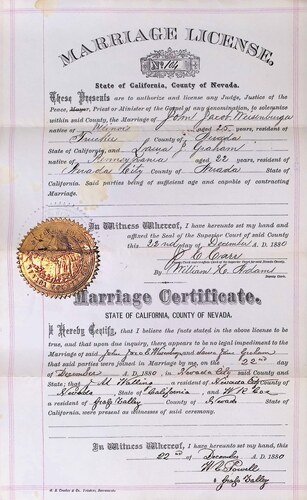 MARRIAGE LICENSE,
No. 164
State of California, County of Nevada.
These Presents are to authorize and license any Judge, Justice of the
Peace, Mayor, Priest or Minister of the Gospel of any denomination, to solemnize
within said County, the Marriage of John Jacob
native of Illinois aged 25 years, resident of
Truckee County of Nevada
State of California, and Laura J. Graham
native of Pennsylvania aged 22 years, resident of
Nevada City County of Nevada State of
California. Said parties being of sufficient age and capable of contracting
Marriage.
In Witness Whereof, I have hereunto set my hand and
affixed the Seal of the Superior Court of said County
this 22nd day of December A. D. 1880
J. E. Carr
By William D. Adams
Deputy Clerk.
Marriage Certificate.
STATE OF CALIFORNIA, COUNTY OF NEVADA.
I Hereby Certify, that I believe the facts stated in the above license to
be true, and that upon due inquiry, there appears to be no legal impediment to the
Marriage of said John Jacob and Laura Graham
that said parties were joined in Marriage by me, on the 22nd day of
December A. D. 1880, in Nevada City said County and
State; that J. M. Walling a resident of Nevada City County of
Nevada State of California and W. K.
a resident of Grass Valley County of Nevada State of
were present as witnesses of said ceremony.
In Witness Whereof, I have hereunto set my hand, this
22nd December A. D. 1880
W. C. Powell
Grass Valley